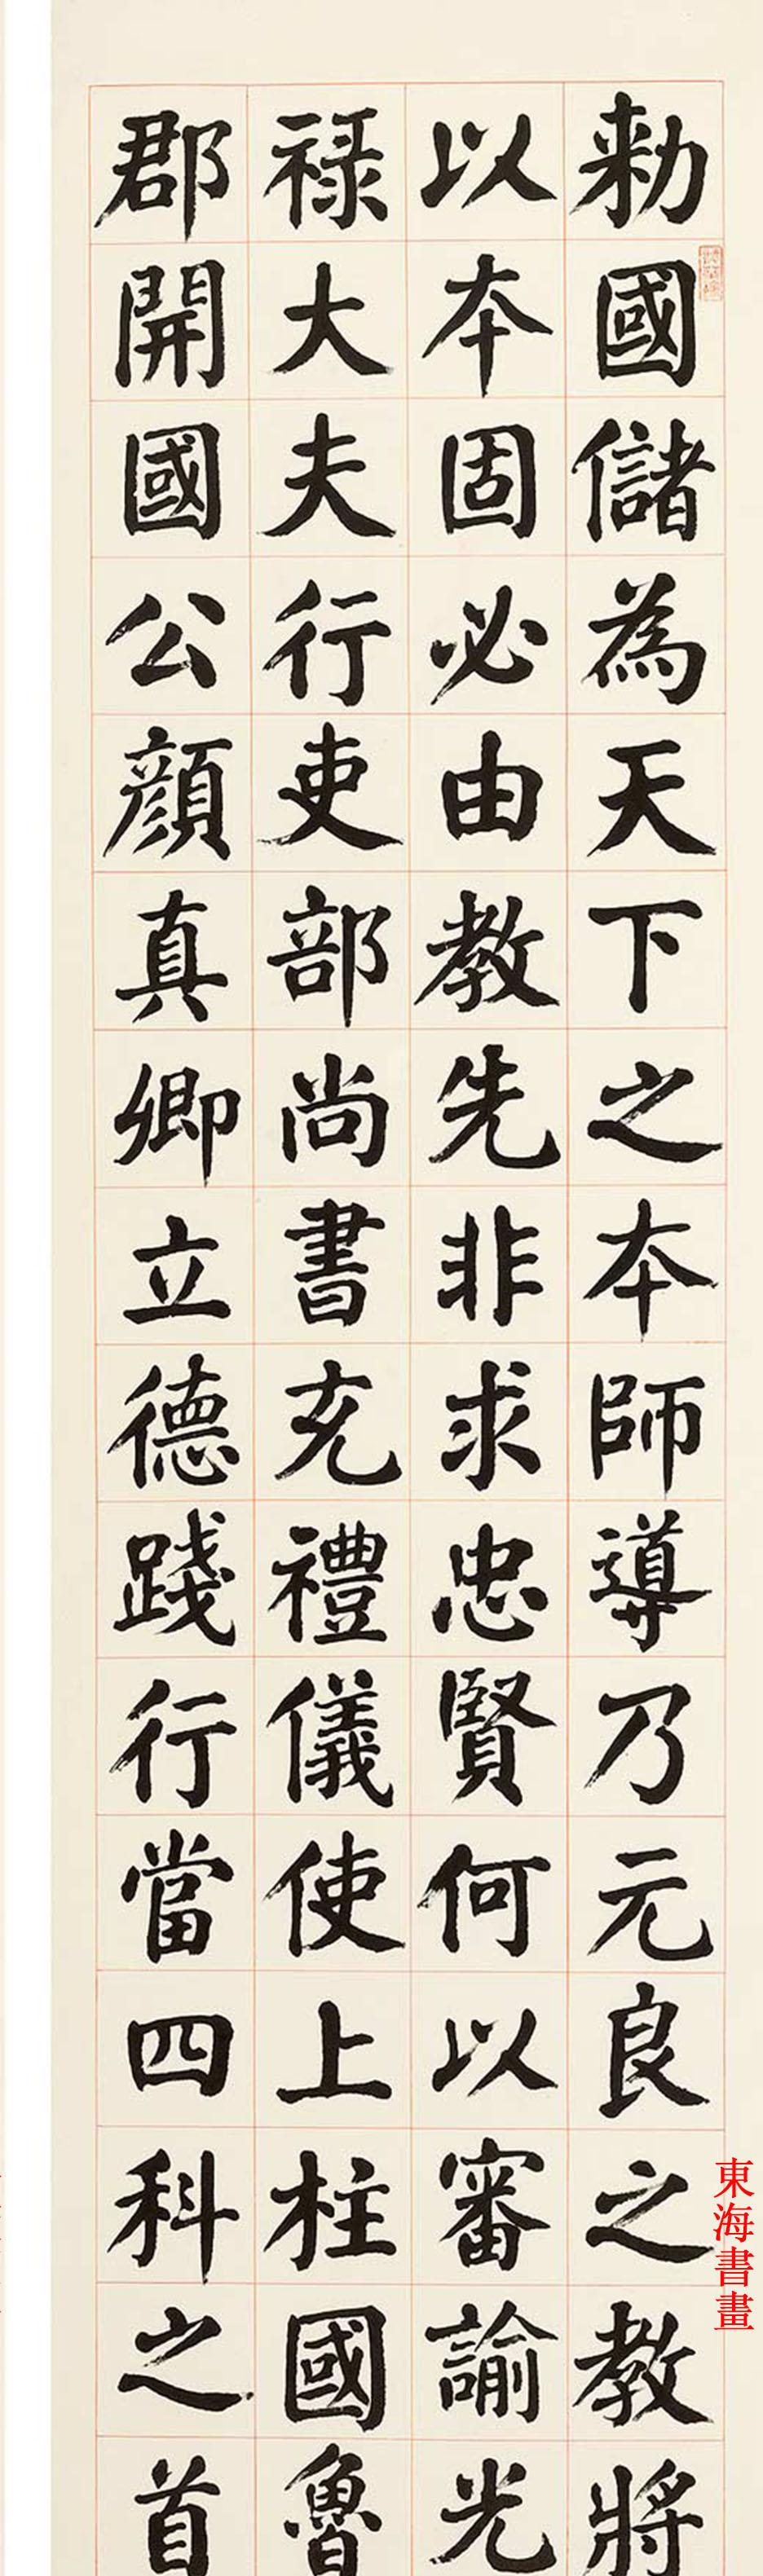 勑國儲為天下之本師導乃元良之教將
以本固必由教先非求忠賢何以審諭光
禄大夫行吏部尚書充禮儀使上柱國魯
郡開國公顔真卿立德踐行當四科之首
東海書畫